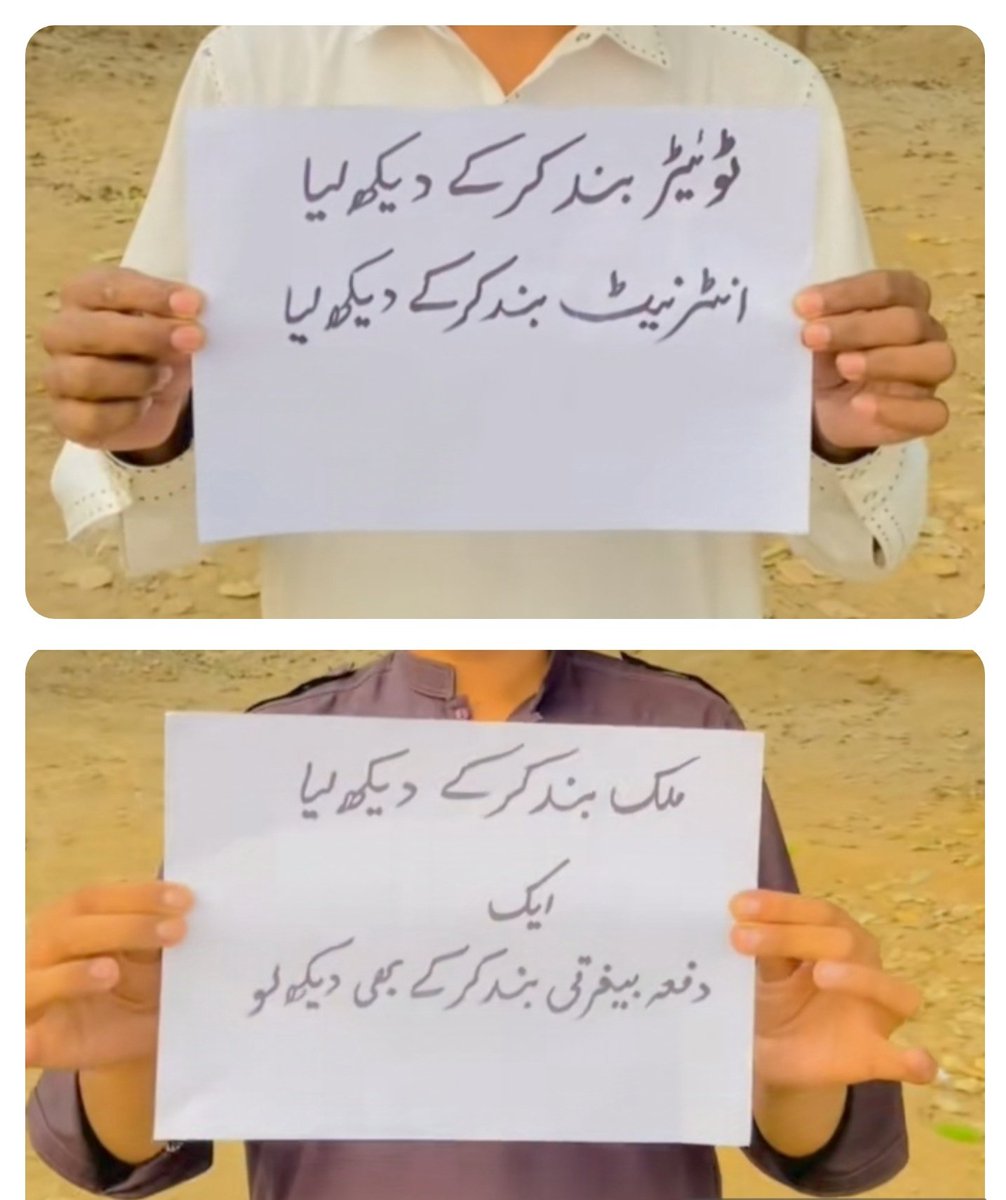 ٹوئیٹر بند کر کے دیکھ لیا
انٹرنیٹ بند کر کے دیکھ لیا
ملک بند کر کے دیکھ لیا
ایک
دفعہ بیغرتی بند کر کے بھی دیکھ لو